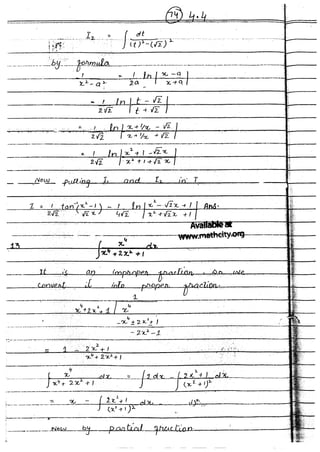 74 4.4
I₂ = ∫ dt / (t)² - (√2)²
by formula
1 / x² - a² = 1 / 2a ln | x - a / x + a |
= 1 / 2√2 ln | t - √2 / t + √2 |
= 1 / 2√2 ln | x + 1/x - √2 / x + 1/x + √2 |
= 1 / 2√2 ln | x² + 1 - √2 x / x² + 1 + √2 x |
Now putting I₁ and I₂ in I
I = 1 / 2√2 tan⁻¹ ( x² - 1 / √2 x ) - 1 / 4√2 ln | x² - √2x + 1 / x² + √2x + 1 | Ans.
Available at
www.mathcity.org
13 ∫ x⁴ / x⁴ + 2x² + 1 dx
It is an improper fraction. So we
convert it into proper fraction.
1
x⁴ + 2x² + 1 / x⁴
-x⁴ ± 2x² ± 1
- 2x² - 1
= 1 - 2x² + 1 / x⁴ + 2x² + 1
∫ x⁴ / x⁴ + 2x² + 1 dx = ∫ 1 dx - ∫ 2x² + 1 / (x² + 1)² dx
= x - ∫ 2x² + 1 / (x² + 1)² dx.
Now by partial fraction